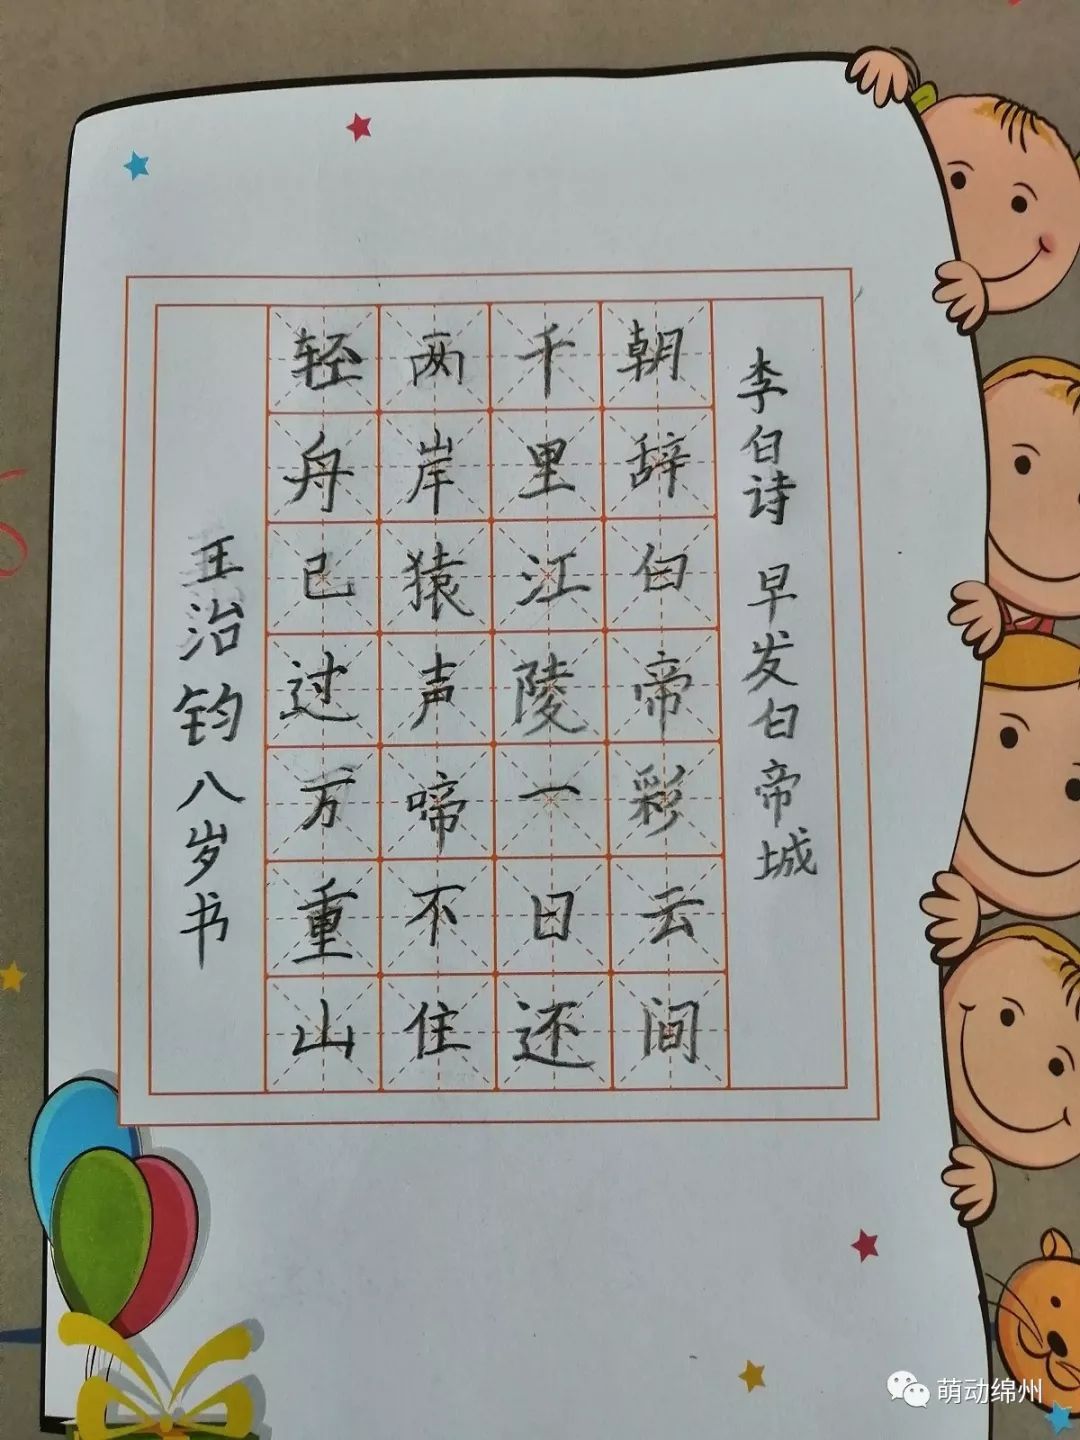 李白诗 早发白帝城
朝辞白帝彩云间
千里江陵一日还
两岸猿声啼不住
轻舟已过万重山
王治钧八岁书
萌动绵州